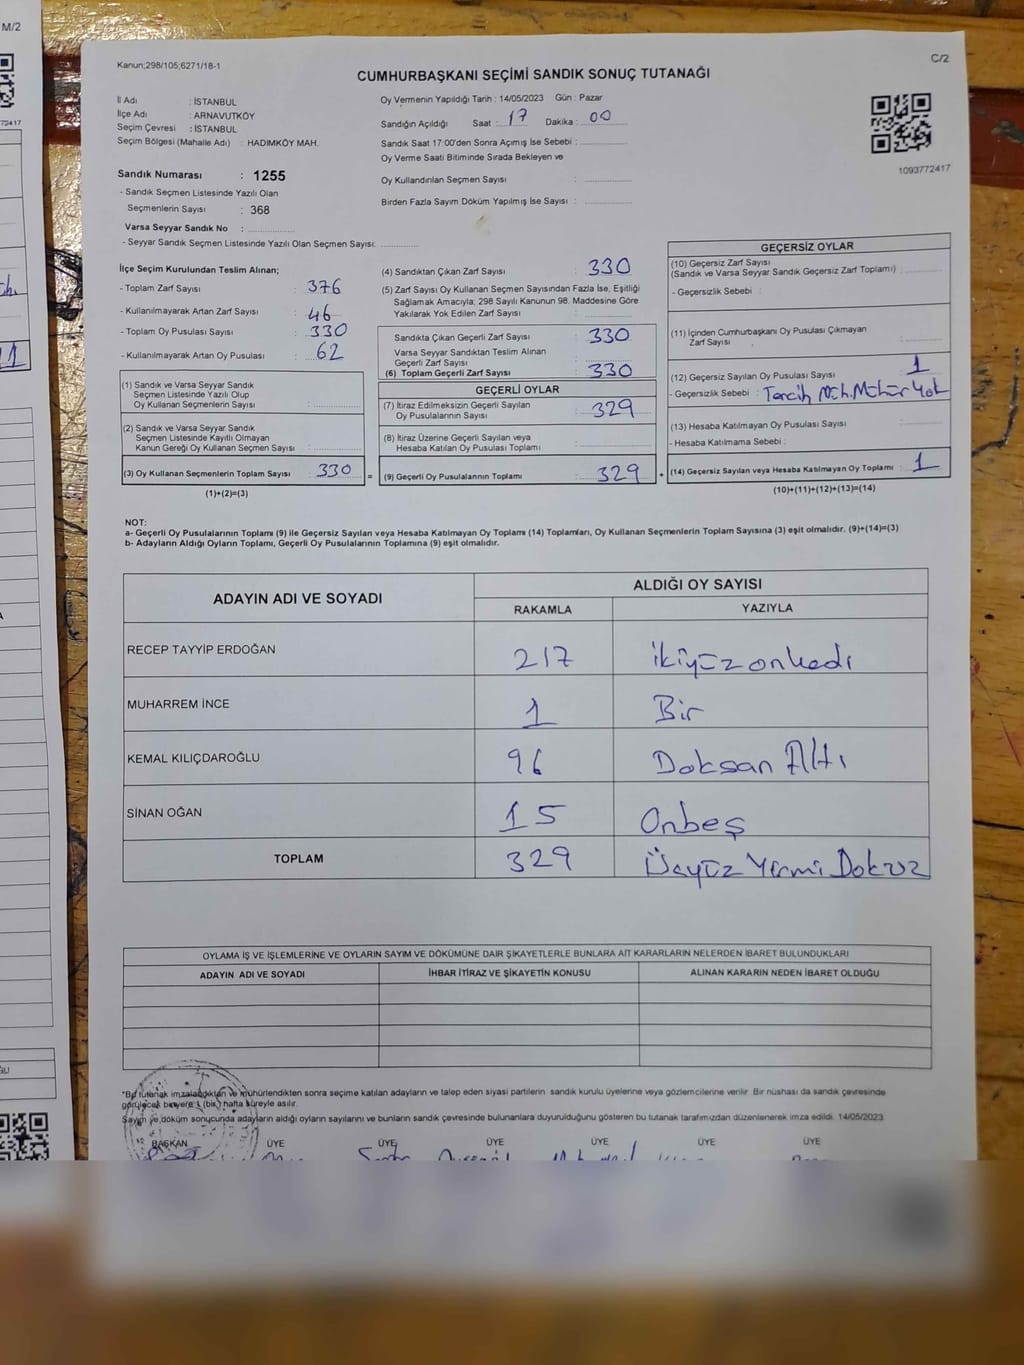 M/2
Kanun;298/105;6271/18-1
C/2
CUMHURBAŞKANI SEÇİMİ SANDIK SONUÇ TUTANAĞI
İl Adı : İSTANBUL
İlçe Adı : ARNAVUTKÖY
Seçim Çevresi : İSTANBUL
Seçim Bölgesi (Mahalle Adı) : HADIMKÖY MAH.
Oy Vermenin Yapıldığı Tarih : 14/05/2023 Gün : Pazar
Sandığın Açıldığı Saat : 17 Dakika : 00
Sandık Saat 17:00'den Sonra Açımış İse Sebebi :
Oy Verme Saati Bitiminde Sırada Bekleyen ve
Oy Kullandırılan Seçmen Sayısı :
Birden Fazla Sayım Döküm Yapılmış İse Sayısı :
1093772417
Sandık Numarası : 1255
- Sandık Seçmen Listesinde Yazılı Olan
Seçmenlerin Sayısı : 368
Varsa Seyyar Sandık No :
- Seyyar Sandık Seçmen Listesinde Yazılı Olan Seçmen Sayısı:
İlçe Seçim Kurulundan Teslim Alınan;
- Toplam Zarf Sayısı : 376
- Kullanılmayarak Artan Zarf Sayısı : 46
- Toplam Oy Pusulası Sayısı : 330
- Kullanılmayarak Artan Oy Pusulası : 62
(1) Sandık ve Varsa Seyyar Sandık
Seçmen Listesinde Yazılı Olup
Oy Kullanan Seçmenlerin Sayısı :
(2) Sandık ve Varsa Seyyar Sandık
Seçmen Listesinde Kayıtlı Olmayan
Kanun Gereği Oy Kullanan Seçmen Sayısı :
(3) Oy Kullanan Seçmenlerin Toplam Sayısı : 330 =
(1)+(2)=(3)
(4) Sandıktan Çıkan Zarf Sayısı : 330
(5) Zarf Sayısı Oy Kullanan Seçmen Sayısından Fazla İse, Eşitliği
Sağlamak Amacıyla; 298 Sayılı Kanunun 98. Maddesine Göre
Yakılarak Yok Edilen Zarf Sayısı :
Sandıkta Çıkan Geçerli Zarf Sayısı : 330
Varsa Seyyar Sandıktan Teslim Alınan
Geçerli Zarf Sayısı
(6) Toplam Geçerli Zarf Sayısı : 330
GEÇERLİ OYLAR
(7) İtiraz Edilmeksizin Geçerli Sayılan
Oy Pusulalarının Sayısı : 329
(8) İtiraz Üzerine Geçerli Sayılan veya
Hesaba Katılan Oy Pusulaları Toplamı :
(9) Geçerli Oy Pusulalarının Toplamı : 329 +
GEÇERSİZ OYLAR
(10) Geçersiz Zarf Sayısı
(Sandık ve Varsa Seyyar Sandık Geçersiz Zarf Toplamı) :
- Geçersizlik Sebebi :
(11) İçinden Cumhurbaşkanı Oy Pusulası Çıkmayan
Zarf Sayısı :
(12) Geçersiz Sayılan Oy Pusulası Sayısı : 1
- Geçersizlik Sebebi : Tercih Müh.Mühür Yok
(13) Hesaba Katılmayan Oy Pusulası Sayısı :
- Hesaba Katılmama Sebebi :
(14) Geçersiz Sayılan veya Hesaba Katılmayan Oy Toplamı : 1
(10)+(11)+(12)+(13)=(14)
NOT:
a- Geçerli Oy Pusulalarının Toplamı (9) ile Geçersiz Sayılan veya Hesaba Katılmayan Oy Toplamı (14) Toplamları, Oy Kullanan Seçmenlerin Toplam Sayısına (3) eşit olmalıdır. (9)+(14)=(3)
b- Adayların Aldığı Oyların Toplamı, Geçerli Oy Pusulalarının Toplamına (9) eşit olmalıdır.
ADAYIN ADI VE SOYADI ALDIĞI OY SAYISI
RAKAMLA YAZIYLA
RECEP TAYYİP ERDOĞAN 217 ikiyüzonkedi
MUHARREM İNCE 1 Bir
KEMAL KILIÇDAROĞLU 96 Doksan Altı
SİNAN OĞAN 15 Onbeş
TOPLAM 329 Üçyüz Yirmi Dokuz
OYLAMA İŞ VE İŞLEMLERİNE VE OYLARIN SAYIM VE DÖKÜMÜNE DAİR ŞİKAYETLERLE BUNLARA AİT KARARLARIN NELERDEN İBARET BULUNDUKLARI
ADAYIN ADI VE SOYADI İHBAR İTİRAZ VE ŞİKAYETİN KONUSU ALINAN KARARIN NEDEN İBARET OLDUĞU
*Bu tutanak imzalandıktan ve mühürlendikten sonra seçime katılan adayların ve talep eden siyasi partilerin sandık kurulu üyelerine veya gözlemcilerine verilir. Bir nüshası da sandık çevresinde
görülecek bir yere 1 (bir) hafta süreyle asılır.
Sayım ve döküm sonucunda adayların aldığı oyların sayılarını ve bunların sandık çevresinde bulunanlara duyurulduğunu gösteren bu tutanak tarafımızdan düzenlenerek imza edildi. 14/05/2023
BAŞKAN ÜYE ÜYE ÜYE ÜYE ÜYE ÜYE